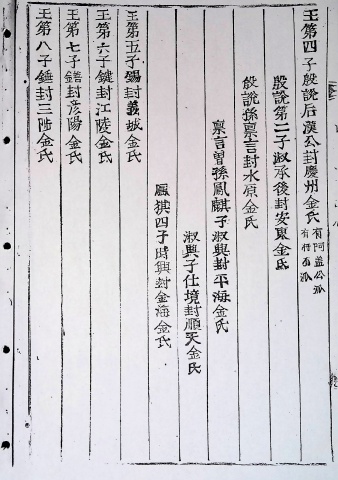 王第四子殷說后漢公封慶州金氏 有阿盖公派
有仔 派
殷說第二子淑承後封安東金氏
殷說孫禀言封水原金氏
禀言曾孫鳳麒子淑興封平海金氏
淑興子仕境封順天金氏
鳳猉四子時興封金海金氏
王第五子錫封義城金氏
王第六子鍵封江陵金氏
王第七子鐥封彦陽金氏
王第八子錘封三陟金氏